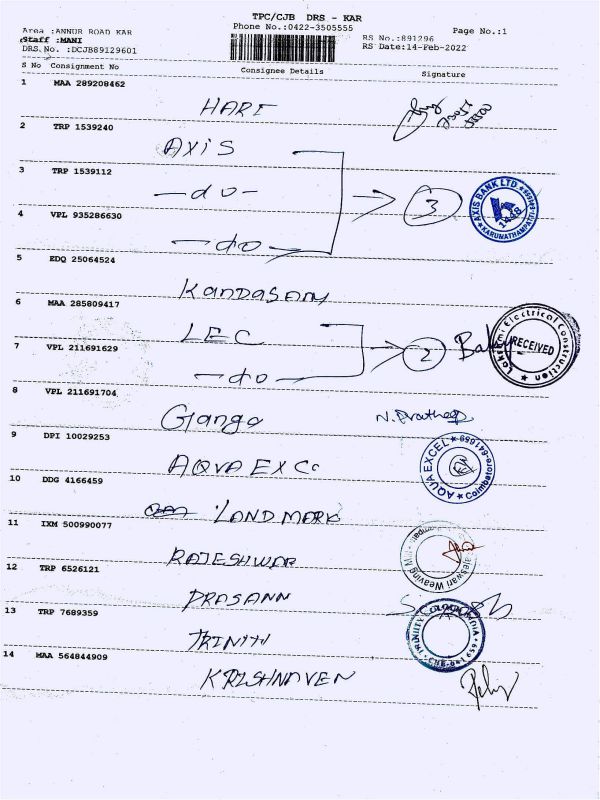 TPC/CJB DRS - KAR
Area :ANNUR ROAD KAR Phone No.:0422-3505555 Page No.:1
Staff :MANI RS No.:891296
DRS.No. :DCJB89129601 RS Date:14-Feb-2022
S No Consignment No Consignee Details Signature
1 MAA 289208462
HARE
2 TRP 1539240
AXIS
3 TRP 1539112
—do— 3 AXIS BANK LTD
4 VPL 935286630
—do—
5 EDQ 25064524
KANDASAMY
6 MAA 285809417
LEC Lakshmi Electrical Construction
7 VPL 211691629 2 RECEIVED
—do
8 VPL 211691704
Ganga N. Prathep
9 DPI 10029253
AQVA EX Co AQUA EXCEL Coimbatore-641659
10 DDG 4166459
LANDMARK
11 IXM 500990077
RAJESHWAR Rajeswari Weaving Mill
12 TRP 6526121
PRASANN
13 TRP 7689359
TRINITY
14 MAA 564844909
KRISHNAVEN